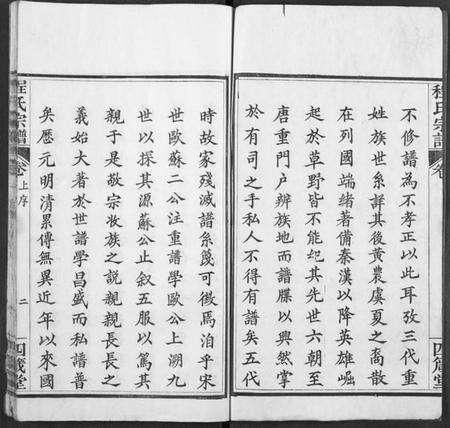 程氏宗譜
卷
四箴堂
不修譜為不孝正以此耳攷三代重
姓族世系詳其後黃農虞夏之裔散
在列國端緒著備秦漢以降英雄崛
起於草野皆不能𥿄其先世六朝至
唐重門戶辨族地而譜牒以興然掌
於有司之手私人不得有譜矣五代
時故家殘滅譜系篾可徵焉洎乎宋
世歐蘇二公注重譜學歐公上溯九
世以探其源蘇公止叙五服以篤其
親于是敬宗收族之說親親長長之
義始大著於世譜學昌盛而私譜普
矣歷元明清累傳無異近年以來國
程氏宗譜
卷上序
二
四箴堂